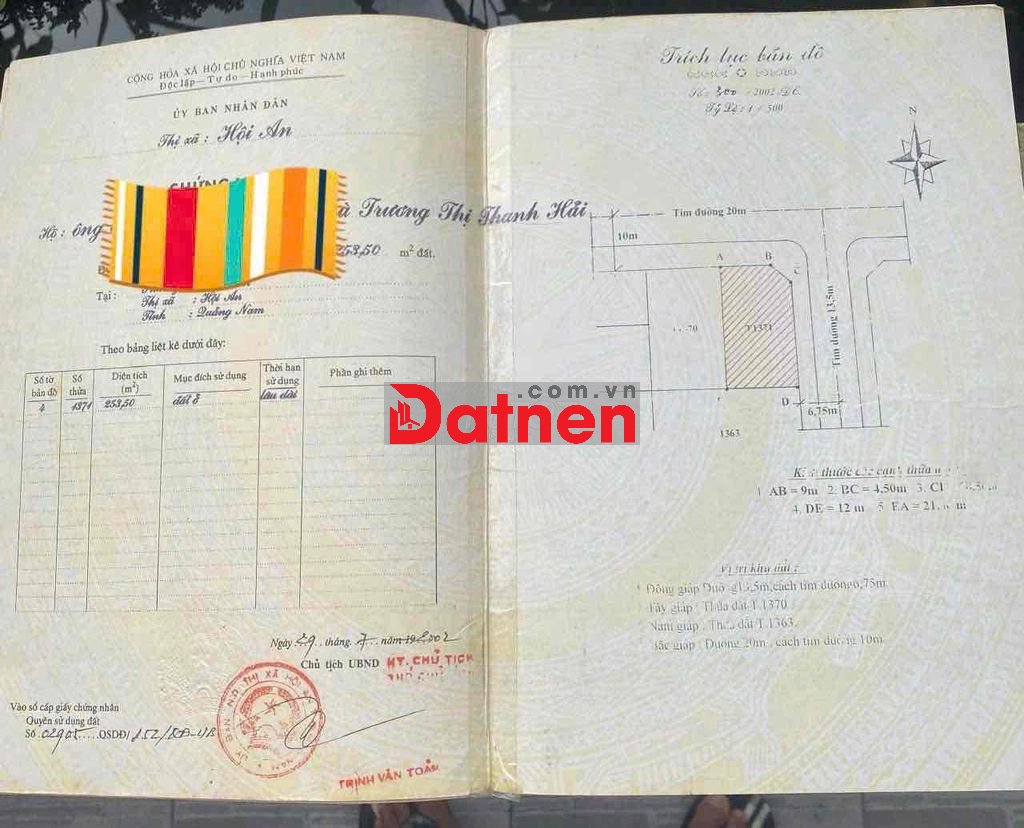 CỘNG HÒA XÃ HỘI CHỦ NGHĨA VIỆT NAM
Độc lập - Tự do - Hạnh phúc
ỦY BAN NHÂN DÂN
Thị xã : Hội An
Hộ : ông
à Trương Thị Thanh Hải
253,50 m² đất.
Tại :
Thị xã : Hội An
Tỉnh : Quảng Nam
Theo bảng liệt kê dưới đây:
Số tờ bản đồ
Số thửa
Diện tích (m²)
Mục đích sử dụng
Thời hạn sử dụng
Phần ghi thêm
4 1371 253,50 đất ở lâu dài
Ngày 29 tháng 7 năm 2002
Chủ tịch UBND KT. CHỦ TỊCH
Vào sổ cấp giấy chứng nhận
Quyền sử dụng đất
Số 02905 QSDĐ/
TRỊNH VĂN TOẢN
Datnen
.com.vn
Trích lục bản đồ
Số: 300 /2002 ĐC
Tỷ Lệ : 1 / 500
N
Tim đường 20m
10m
A
B
C
Tim đường 13,5m
70
T.1371
D
6,75m
1363
Kích thước các cạnh thửa
1. AB = 9m 2. BC = 4,50m 3.
4. DE = 12 m 5. EA = 21,
Vị trí khu đất :
Đông giáp Đường 13,5m, cách tim đường 6,75m
Tây giáp : Thửa đất T.1370
Nam giáp : Thửa đất T.1363.
Bắc giáp : Đường 20m , cách tim đường 10m.